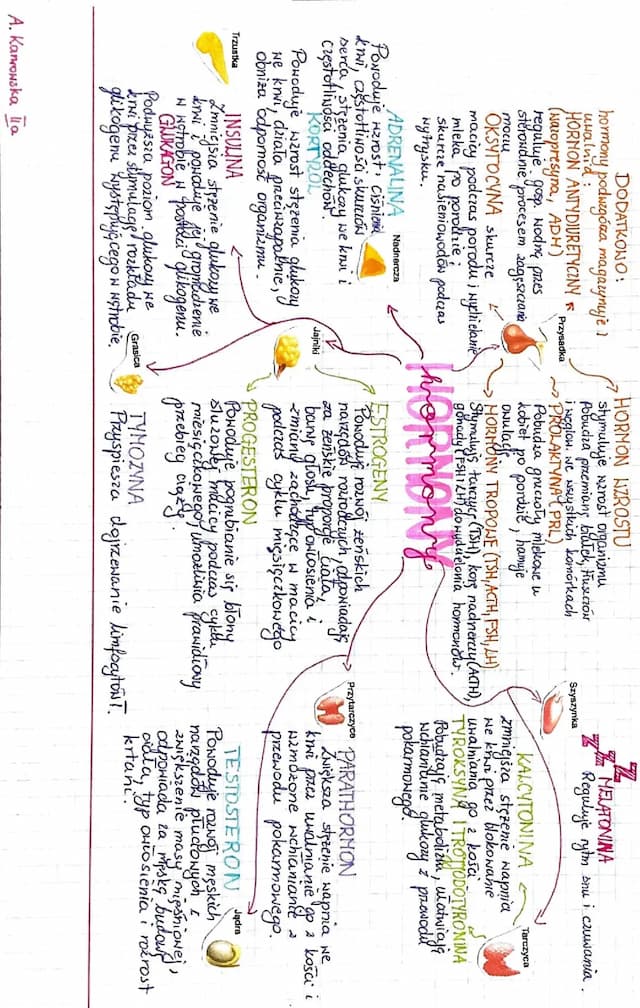 DODATKOWO:
hormony podwzgórza magazynuje i
uwalnia:
HORMON ANTYDIURETYCZNY
(wazopresyna, ADH)
reguluje gosp. wodną przez
sterowanie procesem zagęszczania
moczu
OKSYTOCYNA skurcze
macicy podczas porodu i wydzielanie
mleka po porodzie i
skurcze nasieniowodów podczas
wytrysku.
Przysadka
HORMON WZROSTU
stymuluje wzrost organizmu
Pobudza przemiany białek, tłuszczów
i węglow. we wszystkich komórkach
PROLAKTYNA (PRL)
Pobudza gruczoły mlekowe u
kobiet po porodzie, hamuje
owulację
HORMONY TROPOWE (TSH, ACTH, FSH, LH)
Stymulują tarczycę (TSH), korę nadnerczy (ACTH),
gonady (FSH i LH) do wydzielania hormonów.
Szyszynka
MELATONINA
Reguluje rytm snu i czuwania.
zzz
HORMONY
hormony
ADRENALINA
Nadnercza
Powoduje wzrost: ciśnienia
krwi, częstotliwości skurczów
serca, stężenia glukozy we krwi i
częstotliwości oddechów.
KORTYZOL
Powoduje wzrost stężenia glukozy
we krwi, działa przeciwzapalnie,
obniża odporność organizmu.
Tarczyca
KALCYTONINA
zmniejsza stężenie wapnia
we krwi przez blokowanie
uwalniania go z kości
TYROKSYNA I TRÓJJODOTYRONINA
Pobudzają metabolizm, ułatwiają
wchłanianie glukozy z przewodu
pokarmowego.
Jajniki
ESTROGENY
Powodują rozwój żeńskich
narządów rozrodczych, odpowiadają
za żeńskie proporcje ciała,
barwę głosu, typ owłosienia i
zmiany zachodzące w macicy
podczas cyklu miesięczkowego
PROGESTERON
Powoduje pogrubianie się błony
śluzowej macicy podczas cyklu
miesięczkowego, umożliwia prawidłowy
przebieg ciąży.
Przytarczyce
PARATHORMON
Zwiększa stężenie wapnia we
krwi przez uwalnianie go z kości i
wzmożone wchłanianie z
przewodu pokarmowego.
Trzustka
INSULINA
Zmniejsza stężenie glukozy we
krwi i powoduje jej gromadzenie
w wątrobie w postaci glikogenu.
GLUKAGON
Podwyższa poziom glukozy we
krwi przez stymulację rozkładu
glikogenu występującego w wątrobie.
Grasica
TYMOZYNA
Przyspiesza dojrzewanie limfocytów T.
Jądra
TESTOSTERON
Powoduje rozwój męskich
narządów płciowych i
zwiększenie masy mięśniowej,
odpowiada za męską budowę
ciała, typ owłosienia i rozrost
krtani.
A. Karwowska IIa